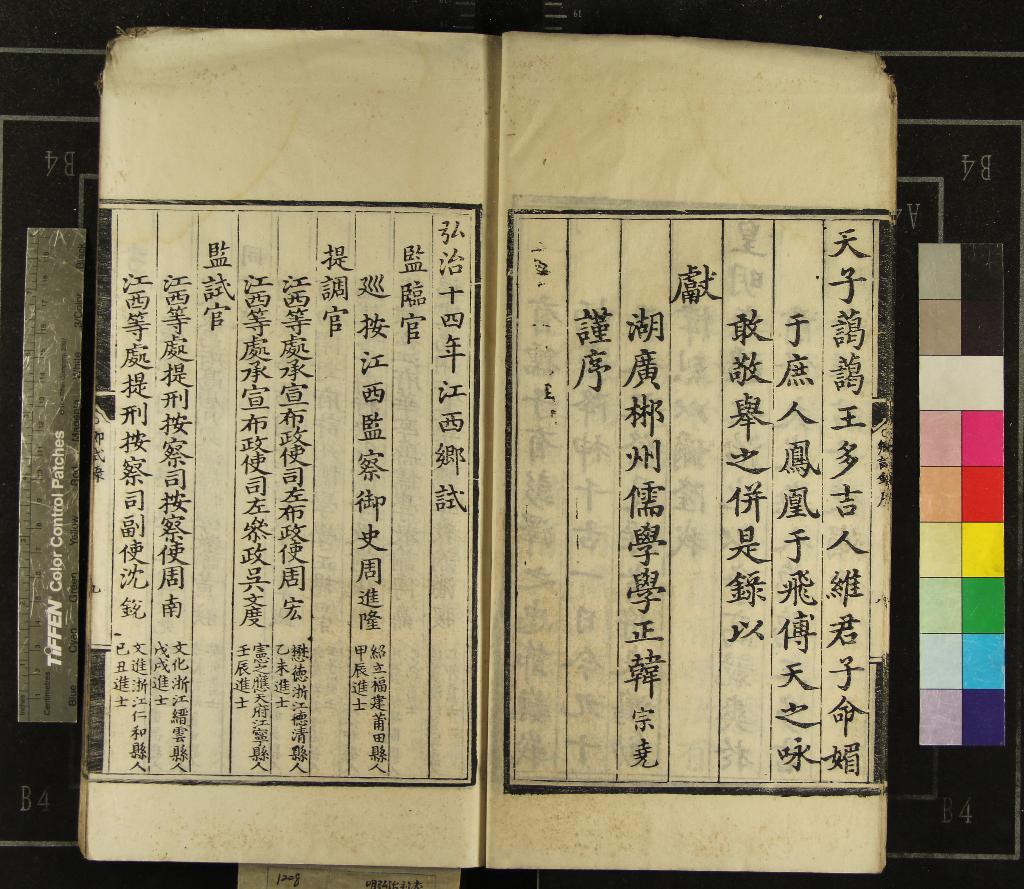 天子藹藹王多吉人維君子命媚
于庶人鳳凰于飛傅天之咏
敢敬舉之併是錄以
獻
湖廣郴州儒學學正韓宗堯
謹序
弘治十四年江西鄉試
監臨官
廵按江西監察御史周進隆 紹立福建莆田縣人甲辰進士
提調官
江西等處承宣布政使司左布政使周宏 懋德浙江德清縣人乙未進士
江西等處承宣布政使司左叅政吳文度 憲之應天府江寧縣人壬辰進士
監試官
江西等處提刑按察司按察使周南 文化浙江縉雲縣人戊戌進士
江西等處提刑按察司副使沈銳 文進浙江仁和縣人己丑進士
九
TIFFEN Color Control Patches
B4
B4
B4
B4
1208